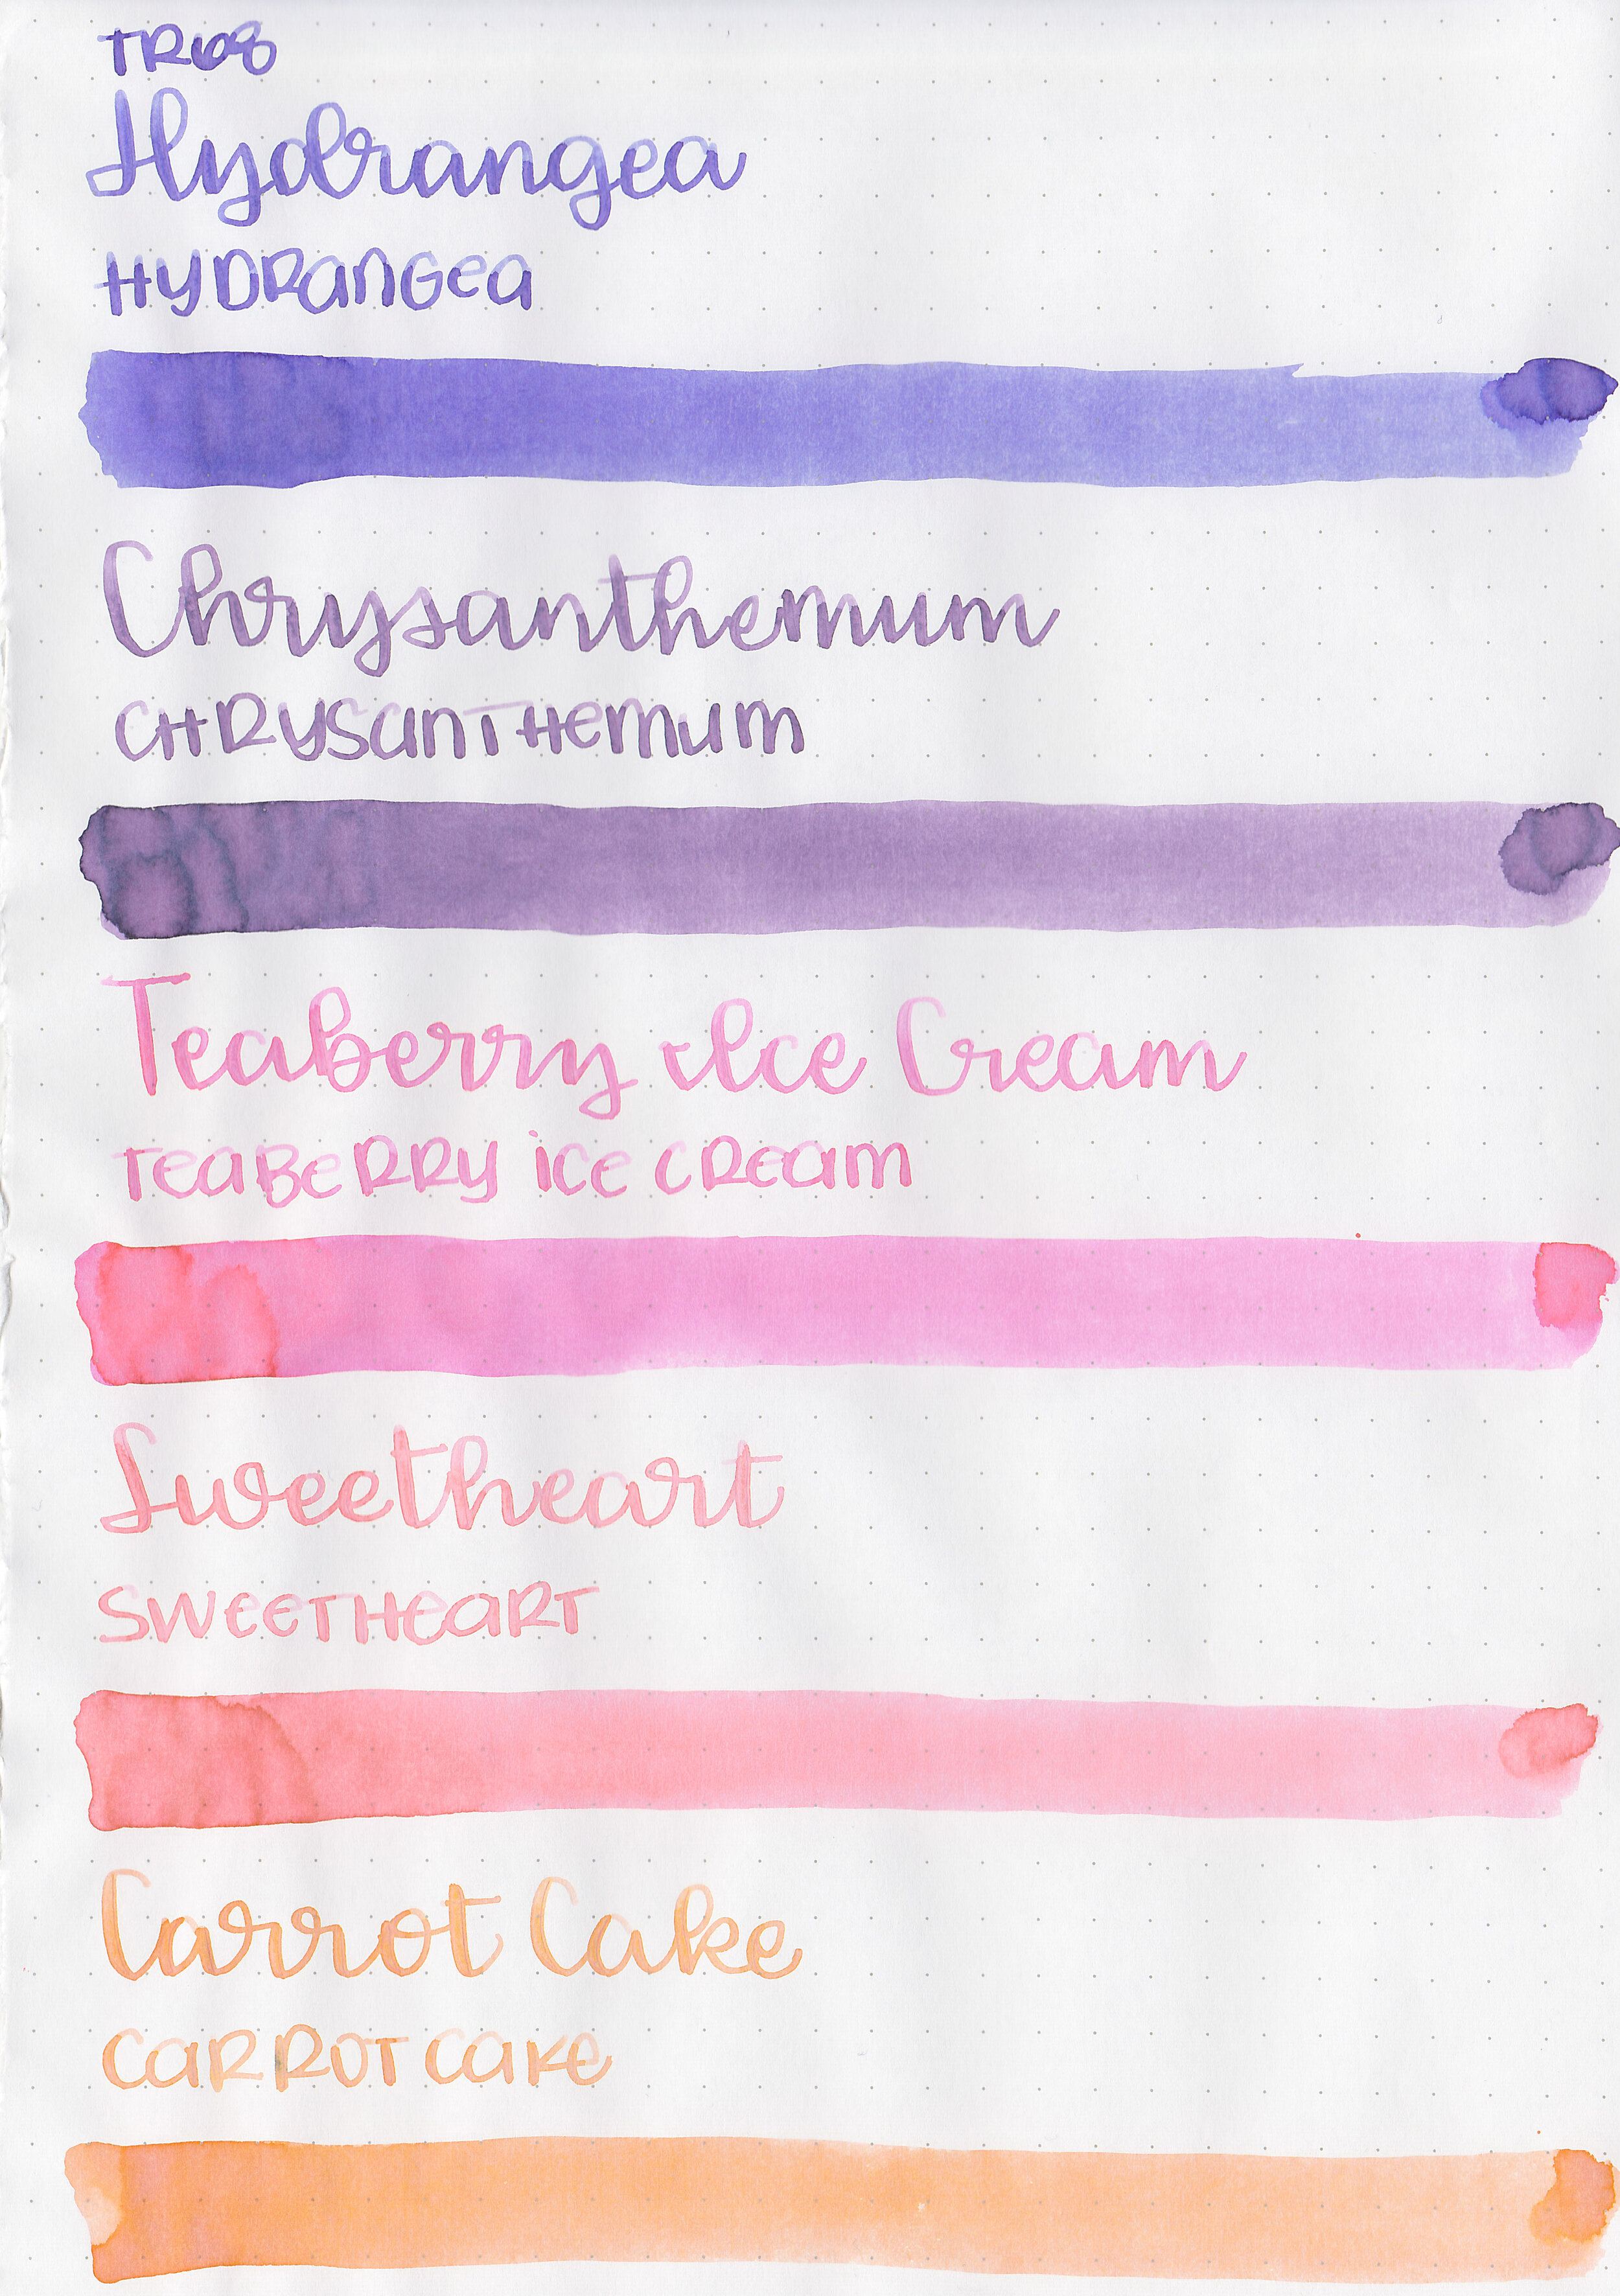 TR68
Hydrangea
HYDRanGea
Chrysanthemum
CHRYSanTHemum
Teaberry Ice Cream
TeaBeRRY ice cReam
Sweetheart
SWeeTHeaRT
Carrot Cake
caRROT caKe